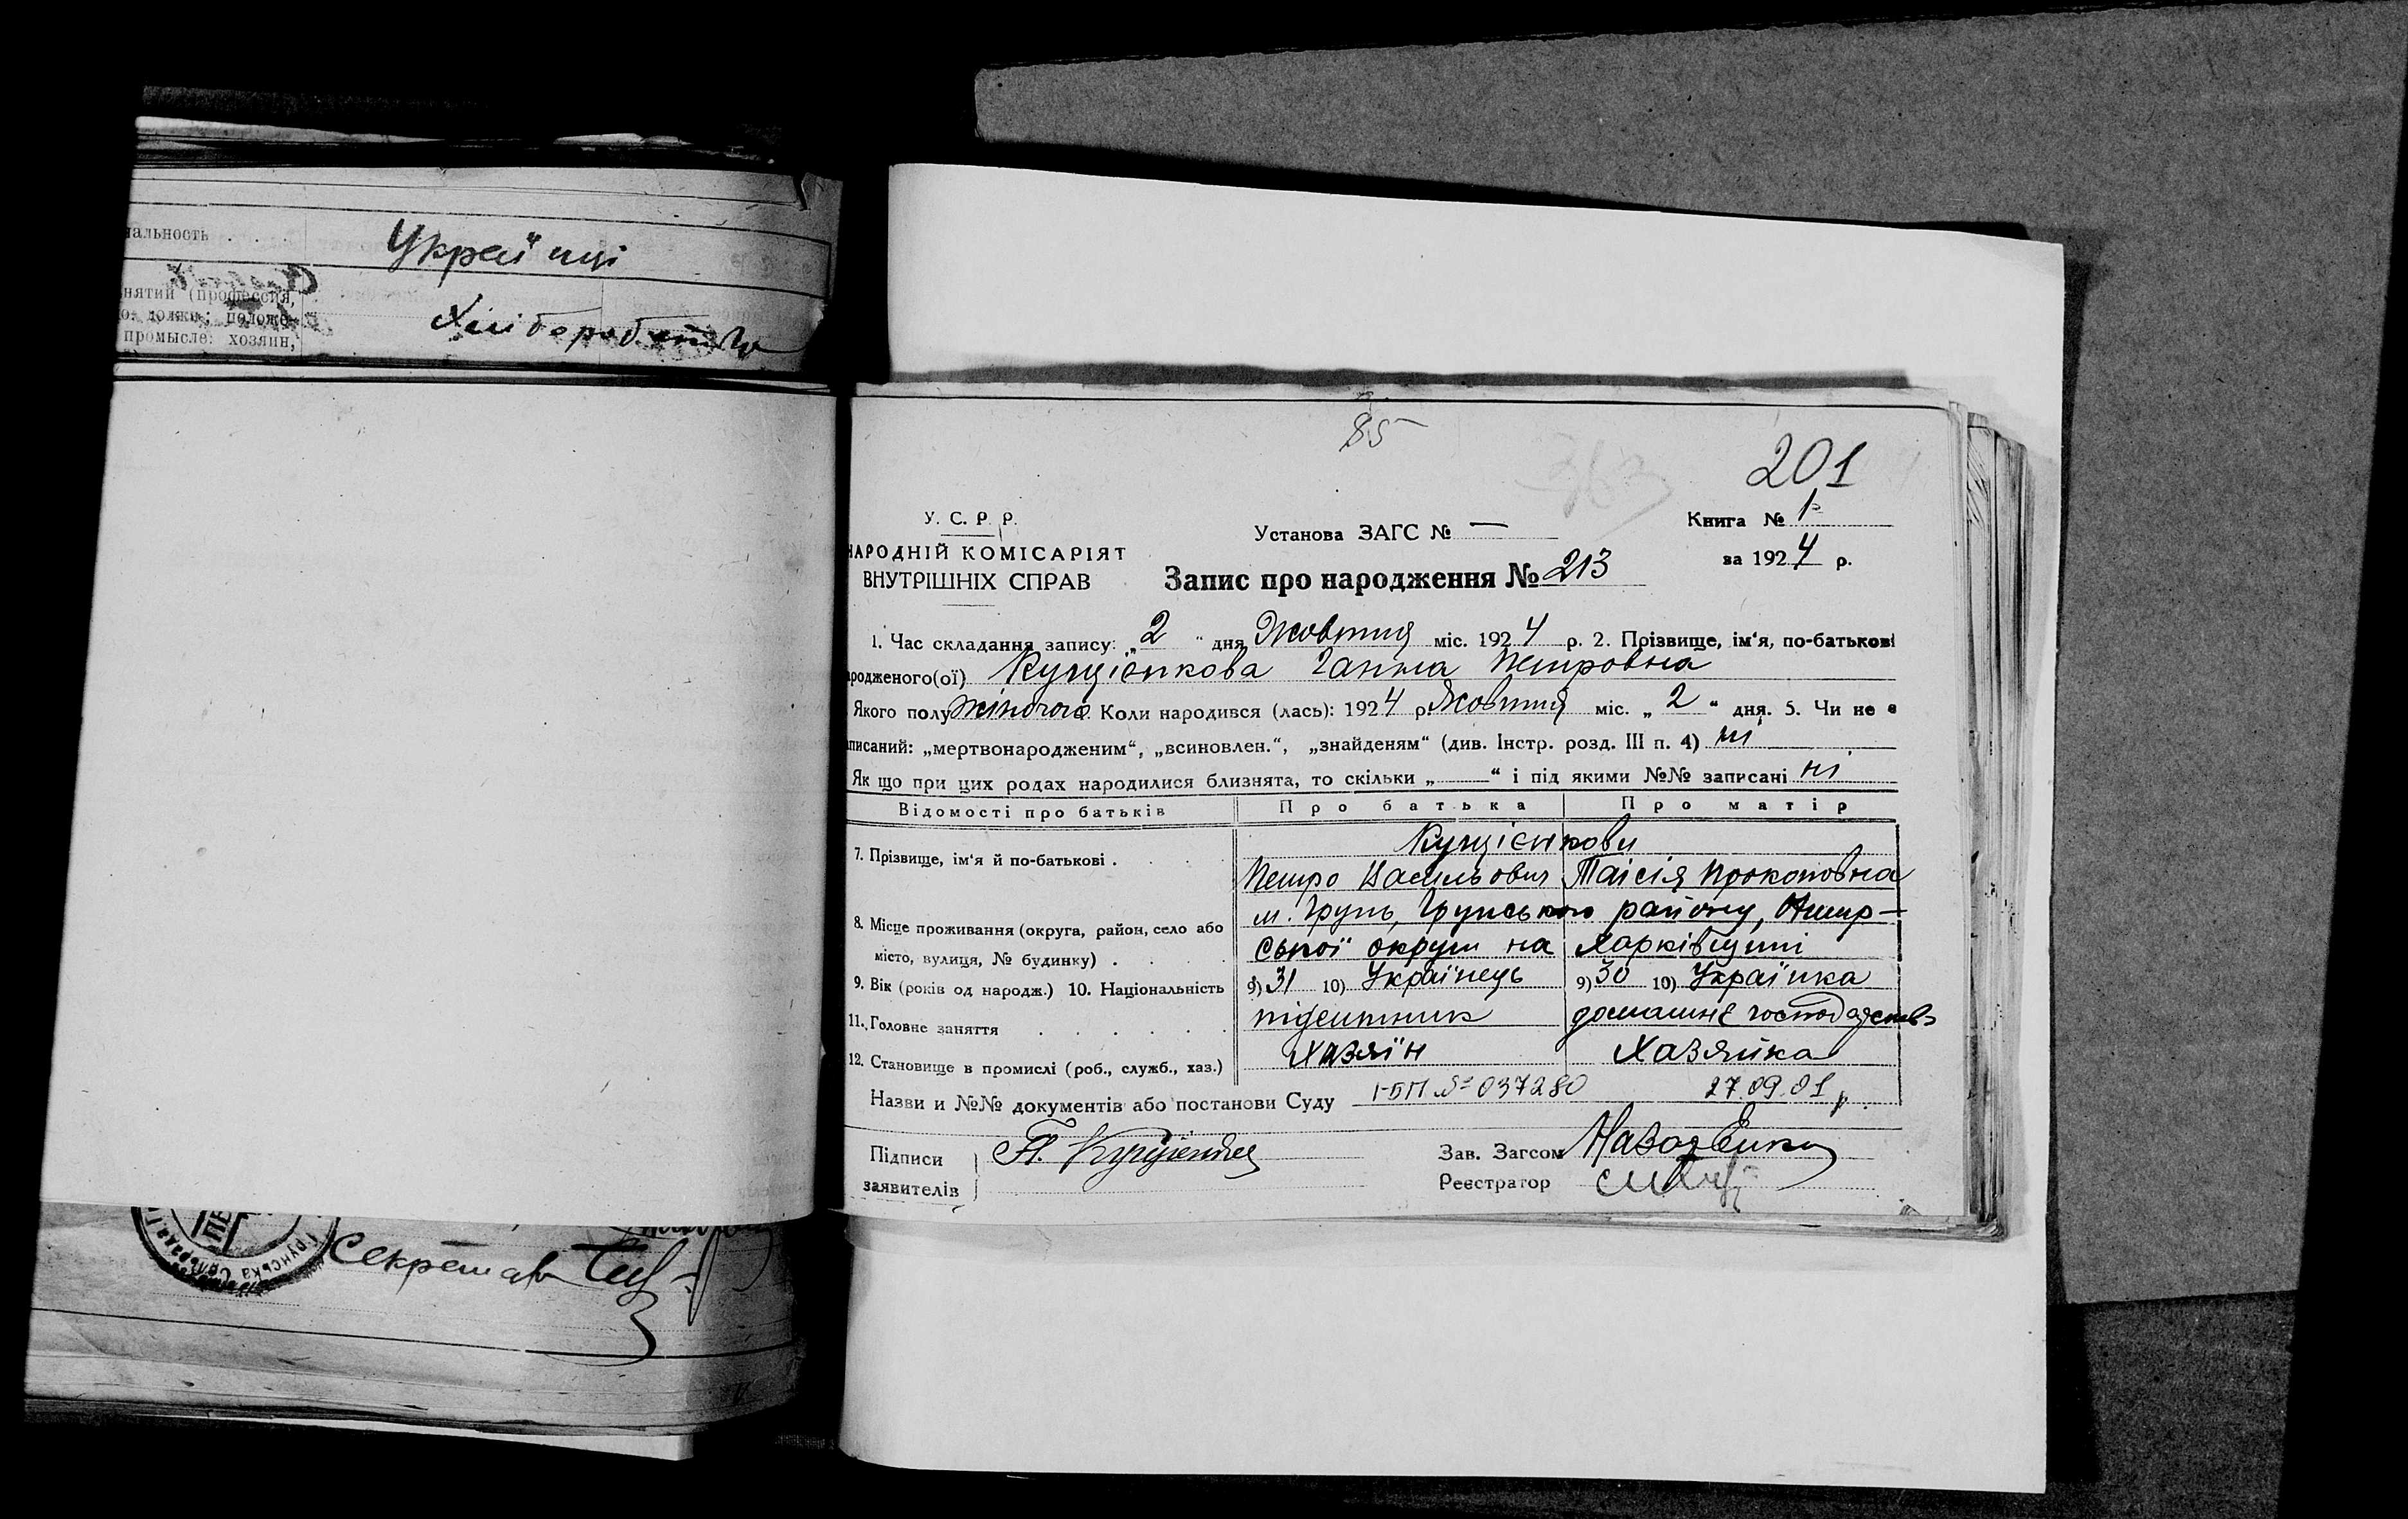 нальность . .
Україні
нятий (профессия,
о. должн; положе-
промысле: хозяин,
Хліборобство
85
201
У. С. Р. Р.
НАРОДНІЙ КОМІСАРІЯТ
ВНУТРІШНІХ СПРАВ
Установа ЗАГС № —
Книга № 1
за 1924 р.
Запис про народження № 213
1. Час складання запису: „2“ дня Жовтня міс. 1924 р. 2. Прізвище, ім'я, по-батькові
ародженого(ої) Куцієнкова Ганна Петровна
Якого полу Жіночого. Коли народився (лась): 1924 р. Жовтня міс. „2“ дня. 5. Чи не є
аписаний: „мертвонародженим“, „всиновлен.“, „знайденям“ (див. Інстр. розд. III п. 4) ні
Як що при цих родах народилися близнята, то скільки „——“ і під якими №№ записані ні
Відомості про батьків Про батька Про матір
Куцієнкови
7. Прізвище, ім'я й по-батькові . . . .
Петро Васильович Таісія Прокоповна
м. Грунь, Грунського району, Охтир-
8. Місце проживання (округа, район, село або
місто, вулиця, № будинку) . . . .
ської округи на Харківщині
9. Вік (років од народж.) 10. Національність 9) 31 10) Українець 9) 30 10) Українка
11. Головне заняття . . . . . . домашнє господарство
12. Становище в промислі (роб., служб., хаз.) Хазяїн Хазяйка
Назви и №№ документів або постанови Суду І-БП № 037280 27.09.01 р.
Підписи
заявителів
П. Куцієнко
Зав. Загсом
Реєстратор
Грунська
Секретар